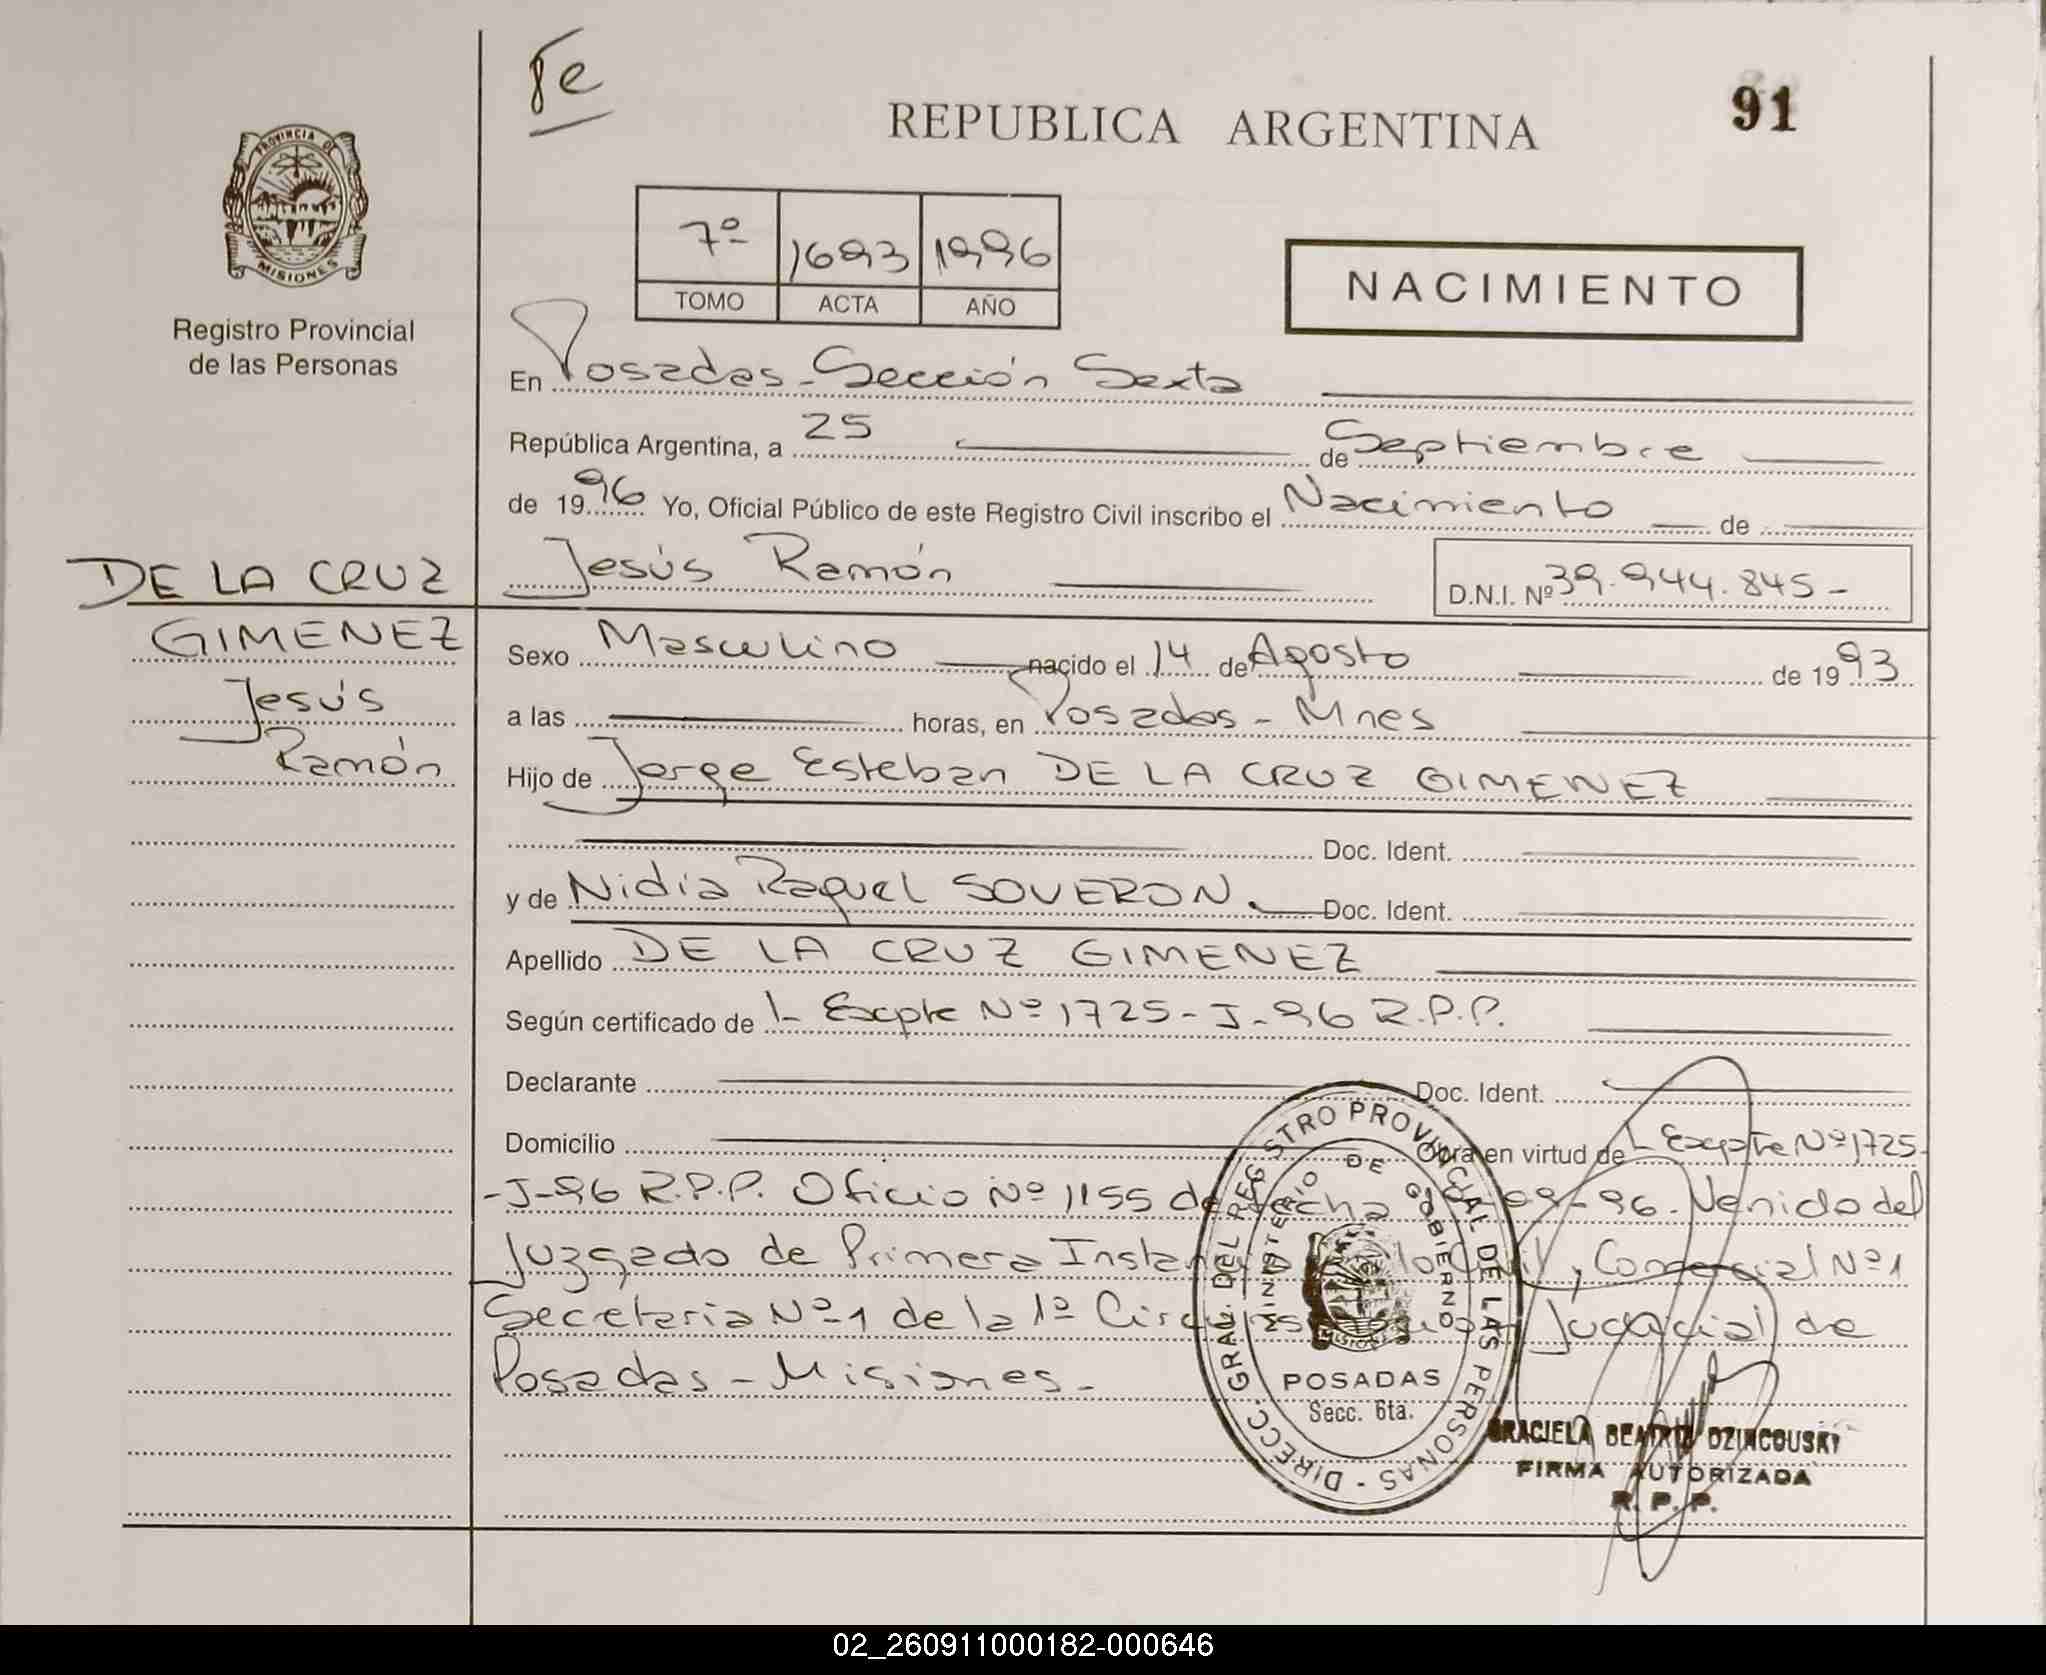 REPUBLICA ARGENTINA
91
PROVINCIA DE
MISIONES
Registro Provincial
de las Personas
7º 1693 1996
TOMO ACTA AÑO
NACIMIENTO
En Posadas - Sección Sexta
República Argentina, a 25 de Septiembre
de 1996 Yo, Oficial Público de este Registro Civil inscribo el Nacimiento de
DE LA CRUZ
GIMENEZ
Jesús
Ramón
Jesús Ramón
D.N.I. Nº 39.944.845-
Sexo Masculino nacido el 14 de Agosto de 1993
a las horas, en Posadas - Mnes
Hijo de Jorge Esteban DE LA CRUZ GIMENEZ
Doc. Ident.
y de Nidia Raquel SOVERON. Doc. Ident.
Apellido DE LA CRUZ GIMENEZ
Según certificado de Expte Nº 1725-J-96 R.P.P.
Declarante Doc. Ident.
Domicilio Obra en virtud de Expte Nº 1725
-J-96 R.P.P. Oficio Nº 1155 de fecha 09-96. Venido del
Juzgado de Primera Instancia en lo Civil, Comercial Nº 1
Secretaria Nº 1 de la 1º Judicial de
Posadas - Misiones-
DIRECC. GRAL. DEL REGISTRO PROVINCIAL DE LAS PERSONAS
MINISTERIO DE GOBIERNO
MISIONES
POSADAS
Secc. 6ta.
GRACIELA BEATRIZ DZINCOUSKI
FIRMA AUTORIZADA
R. P. P.
02_260911000182-000646